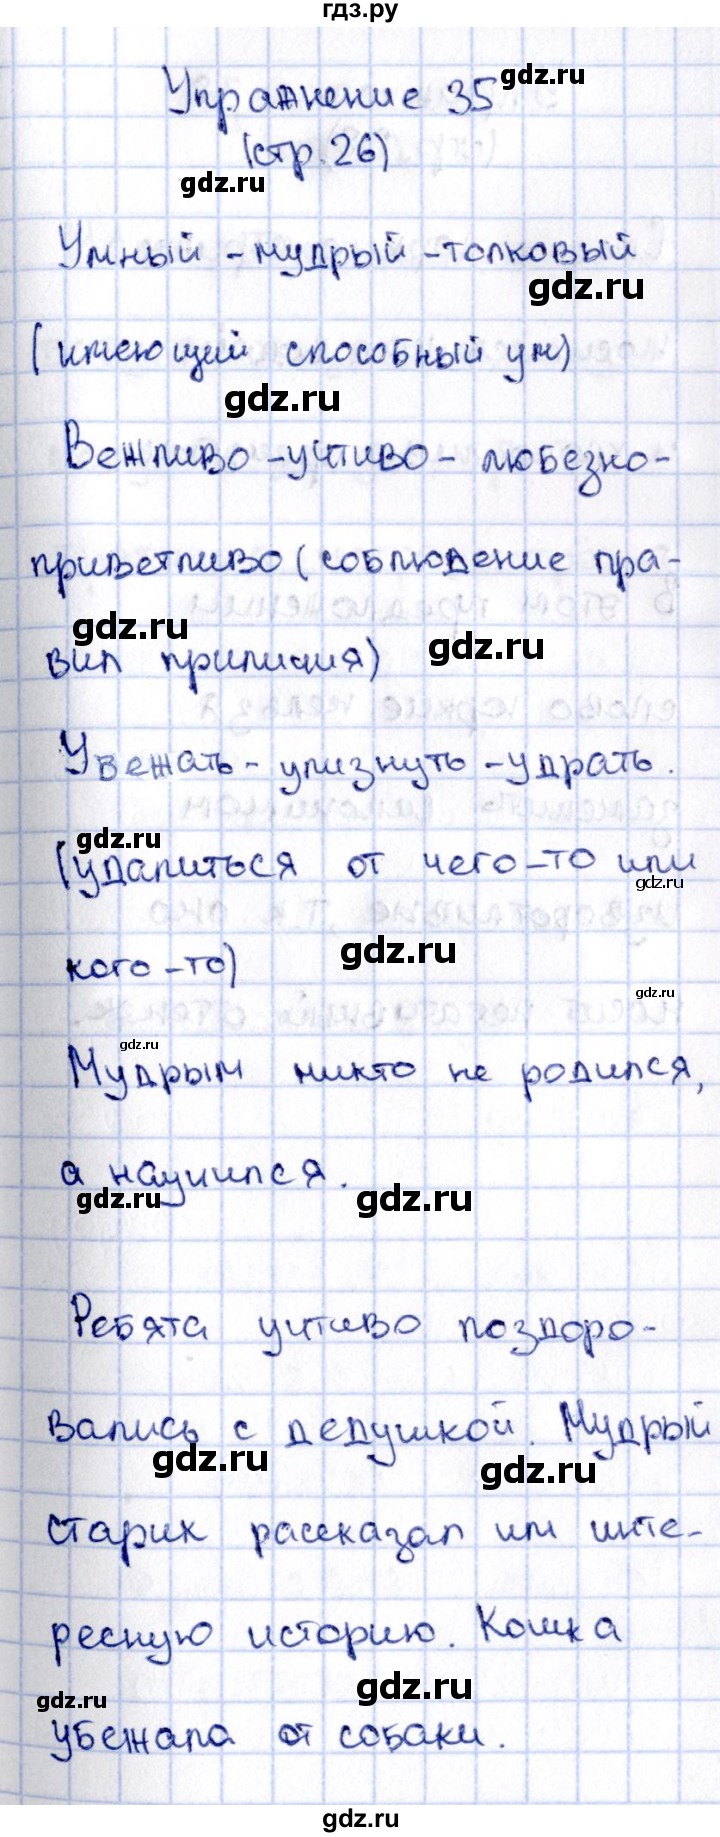 гдз.ру
Упражнение 35
gdz.ru
(стр.26)
gdz.ru
Умный - мудрый - толковый
gdz.ru
(имеющий способный ум)
gdz.ru
Вежливо - учтиво - любезно -
приветливо (соблюдение пра-
gdz.ru
gdz.ru
вил приличия)
Увежать - улизнуть - удрать.
gdz.ru
(удалиться от чего-то или
gdz.ru
gdz.ru
кого-то)
gdz.ru
gdz.ru
Мудрым никто не родился,
а научился.
gdz.ru
gdz.ru
Ребята учтиво поздоро-
вались с дедушкой. Мудрый
gdz.ru
gdz.ru
старик рассказал им инте-
ресную историю. Кошка
gdz.ru
gdz.ru
убежала от собаки.
gdz.ru